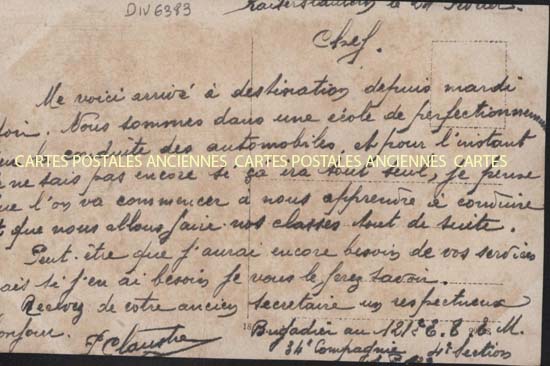 DIV6383
Kaiserslautern le 24 Février.
Chef.
Me voici arrivé à destination depuis mardi
soir. Nous sommes dans une école de perfectionnement
la conduite des automobiles, et pour l'instant
CARTES POSTALES ANCIENNES CARTES POSTALES ANCIENNES CARTES
je ne sais pas encore si ça ira tout seul, je pense
que l'on va commencer à nous apprendre à conduire
que nous allons faire nos classes tout de suite.
Peut-être que j'aurai encore besoin de vos services
mais si j'en ai besoin je vous le ferez savoir.
Recevez de votre ancien secretaire un respectueux
bonjour.
Brigadier au 121e E.M.
34e Compagnie 4e Section